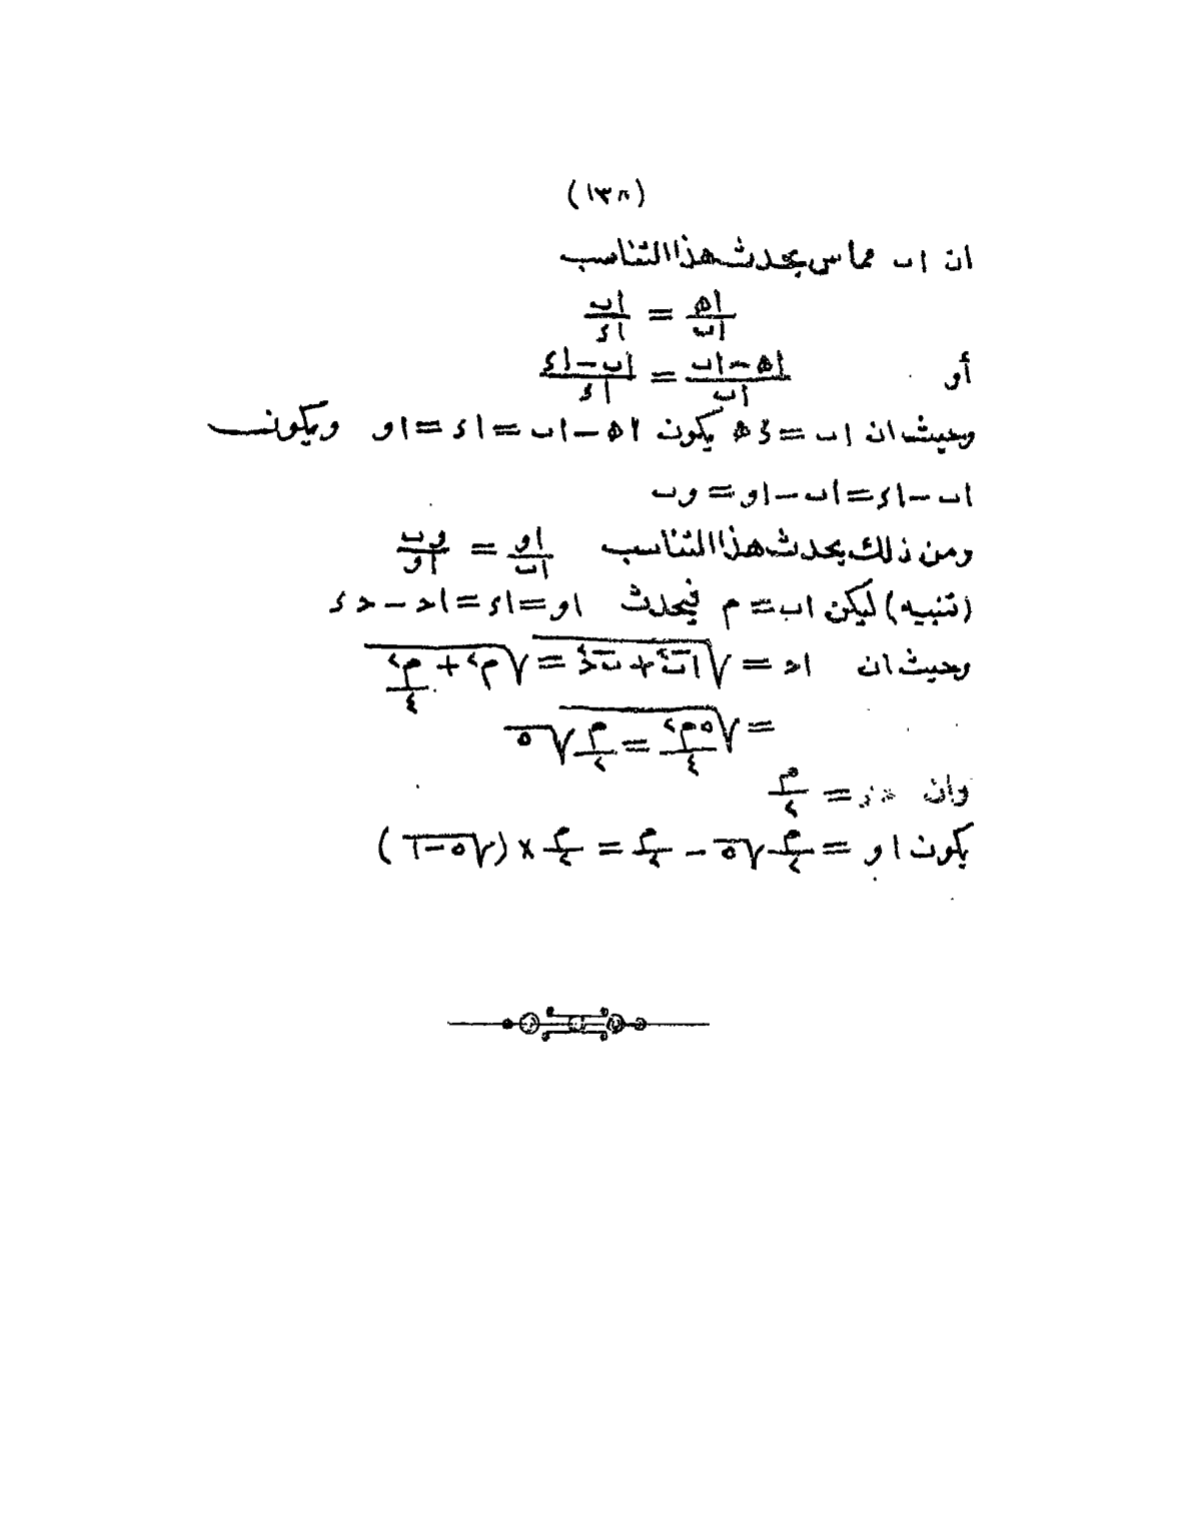 (١٣٨)
ان اب مماس يحدث هذا التناسب
اه/اب = اب/اء
أو اه-اب/اب = اب-اء/اء
وحيث ان اب = ءه يكون اه-اب = اء = او ويكون
اب-اء = اب-او = وب
ومن ذلك يحدث هذا التناسب او/اب = وب/او
(تنبيه) ليكن اب = م فيحدث او = اء = احـ - حـء
وحيث ان احـ = √(اب٢ + بحـ٢) = √(م٢ + م٢/٤)
= √(٥م٢/٤) = م/٢ √٥
وان = م/٢
يكون او = م/٢ √٥ - م/٢ = م/٢ × (√٥-١)